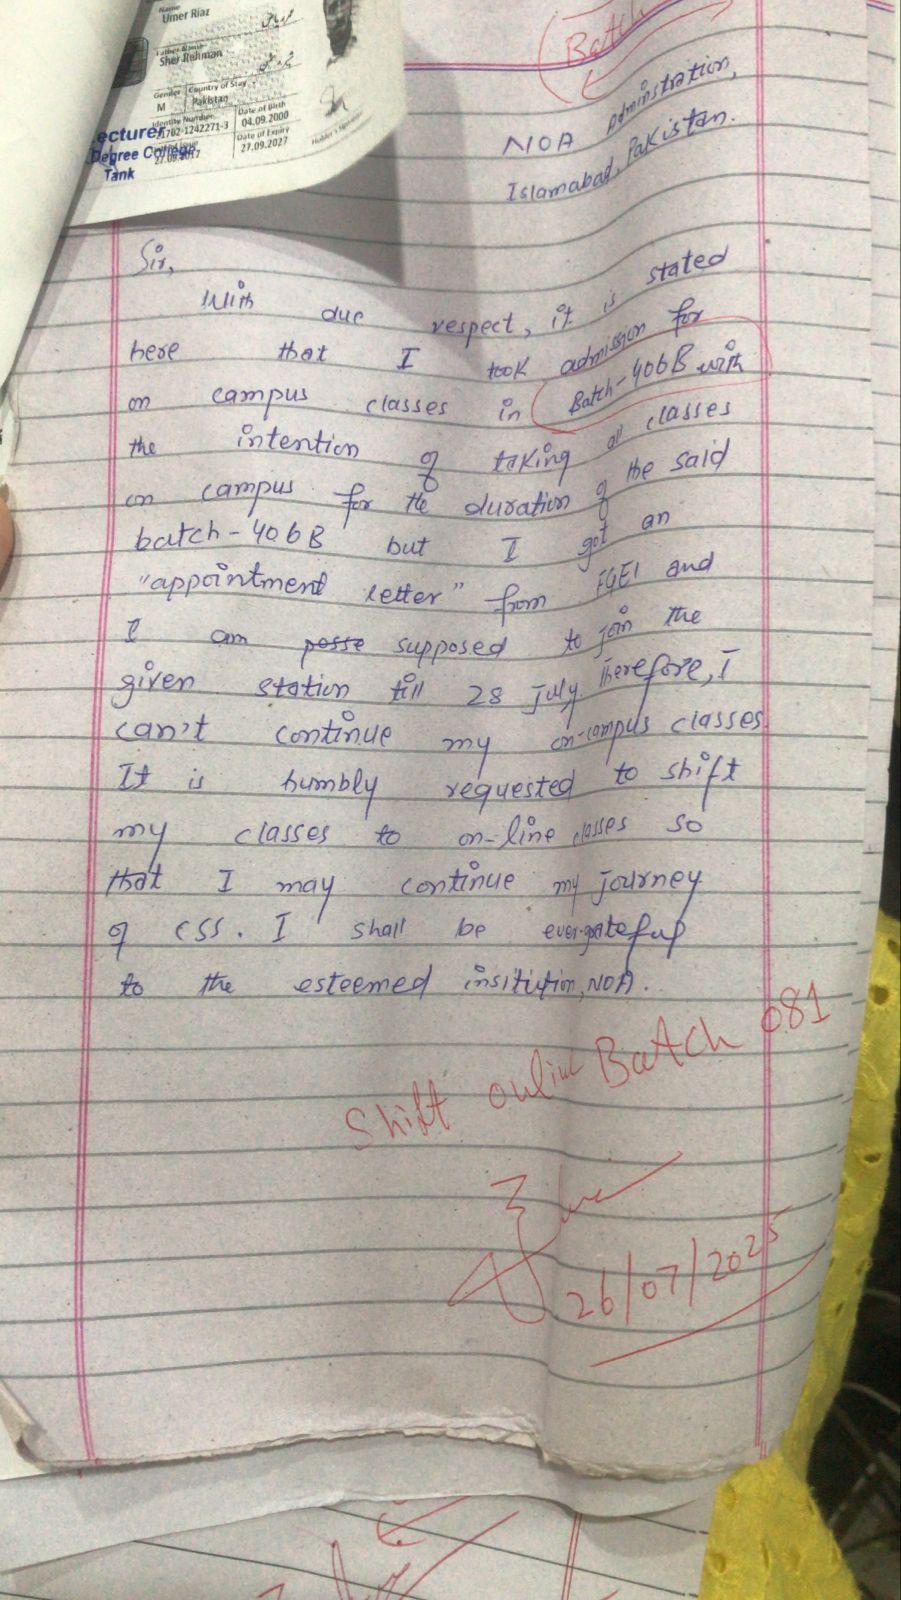 Name
Umer Riaz
Father Name
Sher Rehman
Gender
Country of Stay
M
Pakistan
Identity Number
Date of Birth
1702-1242271-3
04.09.2000
Date of Expiry
27.09.2017
27.09.2027
Holder's Signature
ecturer
Degree College
Tank
Batch
NOA Adminstration,
Islamabad, Pakistan.
Sir,
With due respect, it is stated
here that I took admission for
on campus classes in Batch-406B with
the intention of taking all classes
on campus for the duration of the said
batch-406B but I got an
"appointment letter" from FGEI and
I am posse supposed to join the
given station till 28 july. Therefore, I
can't continue my on-campus classes.
It is humbly requested to shift
my classes to on-line classes so
that I may continue my journey
of CSS. I shall be ever-grateful
to the esteemed insitution, NOA.
Shift online Batch 081
26/07/2025